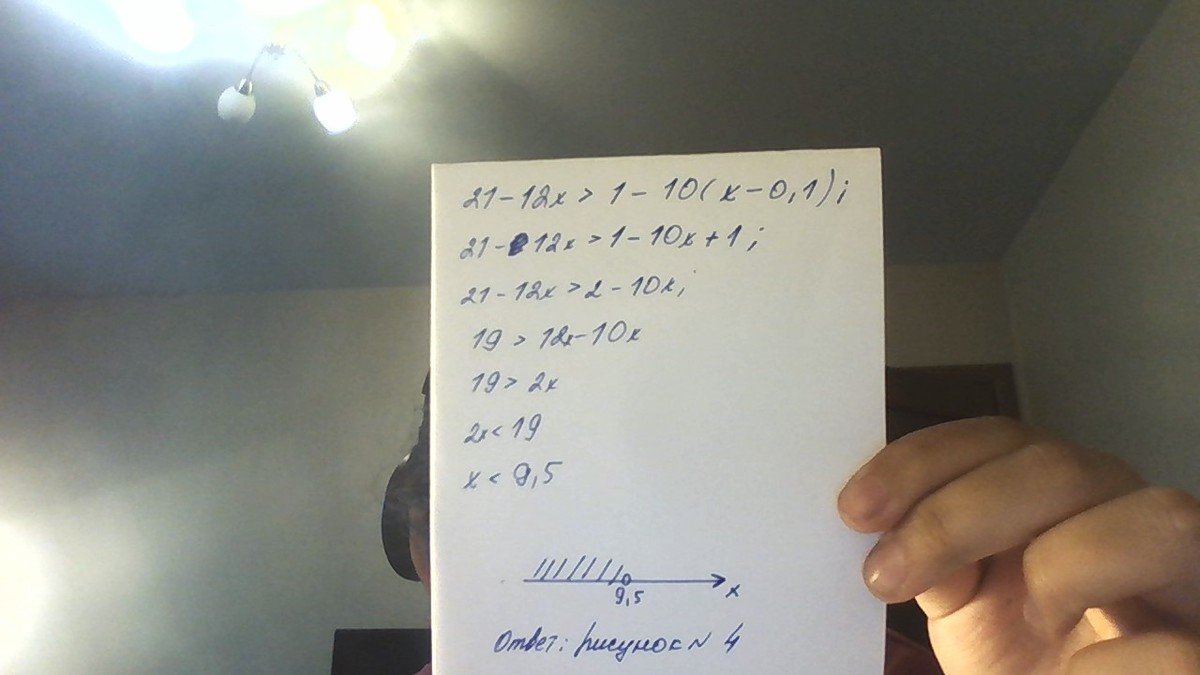 21-12x > 1-10(x-0,1);
21-12x > 1-10x+1;
21-12x > 2-10x;
19 > 12x-10x
19 > 2x
2x < 19
x < 9,5
9,5 x
Ответ: рисунок № 4